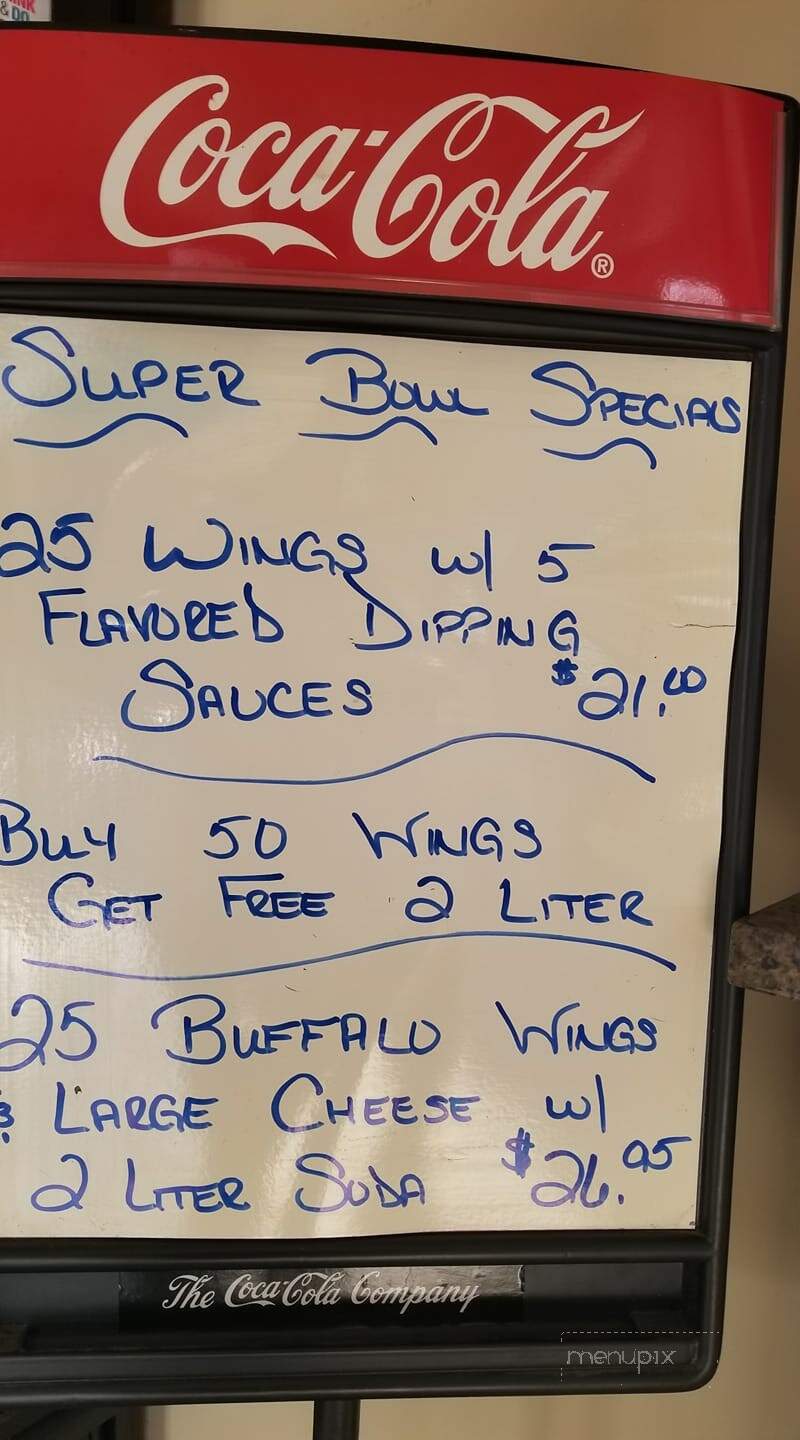 & DO
Coca-Cola®
SUPER BOWL SPECIALS
25 WINGS w/ 5
FLAVORED DIPPING
SAUCES $21.00
BUY 50 WINGS
GET FREE 2 LITER
25 BUFFALO WINGS
& LARGE CHEESE w/
2 LITER SODA $26.95
The Coca-Cola Company
menupix